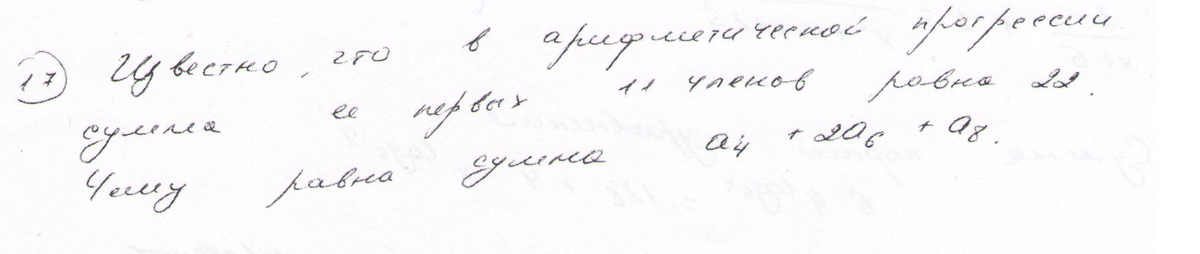 17 Известно, что в арифметической прогрессии
сумма ее первых 11 членов равна 22.
Чему равна сумма a4 + 2a6 + a8.